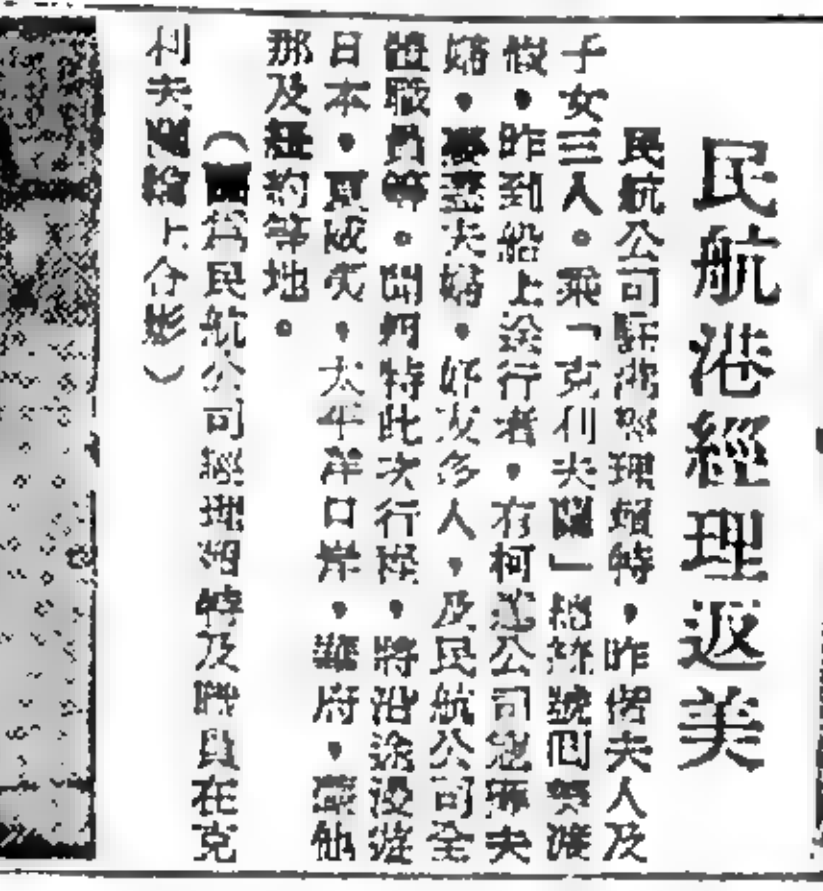 民航港經理返美
民航公司駐港經理 特，昨偕夫人及
子女三人。乘「克利夫蘭」總統號回美渡
假，昨到船上送行者，有柯 公司 夫
婦， 夫婦，好友多人，及民航公司全
體職員等。聞 特此次行程，將沿途漫遊
日本，夏威夷，太平洋口岸，華府，
那及紐約等地。
（圖為民航公司經理 特及職員在克
利夫 輪上合影）